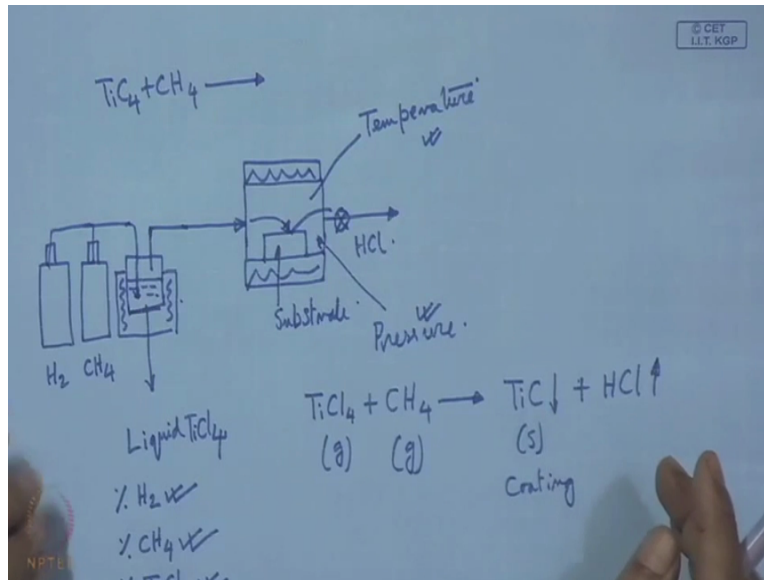 © CET
I.I.T. KGP
TiC₄ + CH₄ →
Temperature
HCl.
Substrate.
Pressure.
H₂ CH₄
Liquid TiCl₄
TiCl₄ + CH₄ → TiC↓ + HCl↑
(g) (g) (s)
Coating
% H₂
% CH₄
% TiCl₄
NPTEL